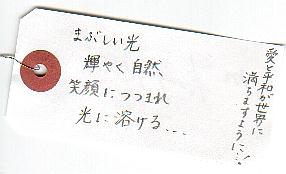 まぶしい光
輝やく自然
笑顔につつまれ
光に溶ける...
愛と平和が世界に
満ちますように...!